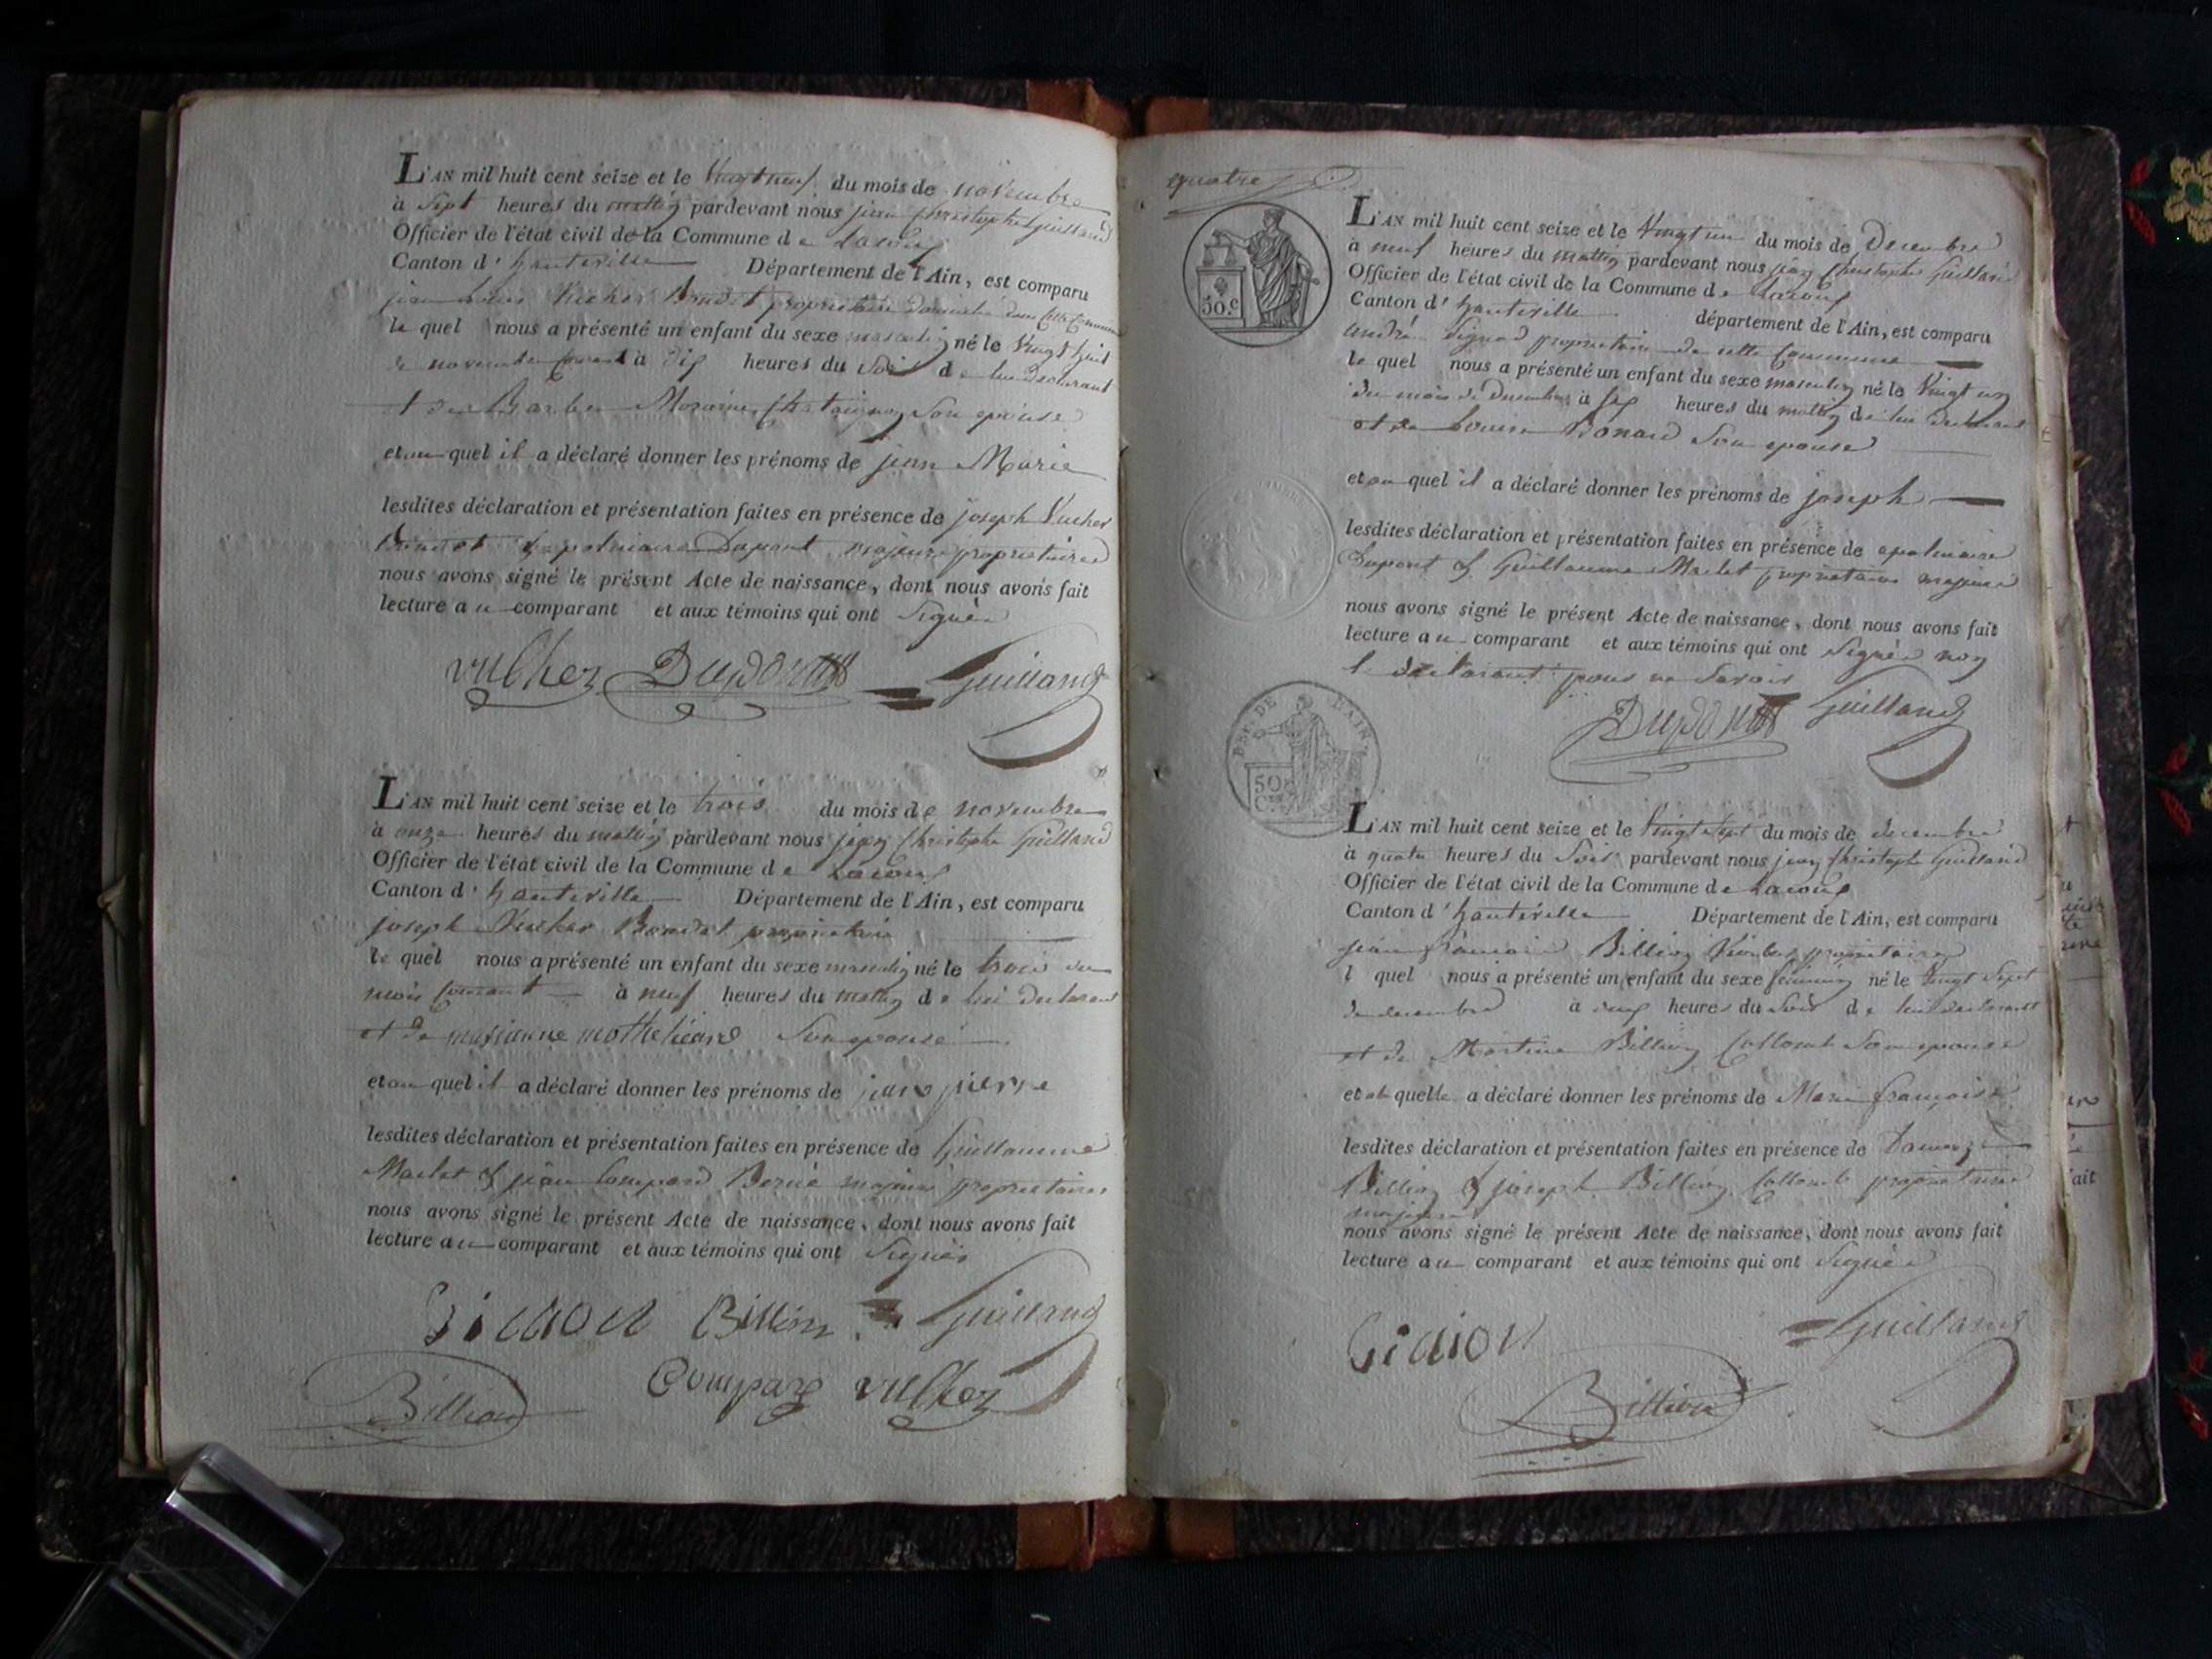 L'AN mil huit cent seize et le Vingt neuf du mois de novembre
à Sept heures du mattin pardevant nous jean Christophe Guilland
Officier de l'état civil de la Commune de Lacoux
Canton d'hauteville Département de l'Ain, est comparu
jean Vucher Bondet proprietaire Domicilié dans cette Commune
le quel nous a présenté un enfant du sexe masculin né le Vingt huit
de novembre Courant à dix heures du Soir de lui Declarant
et de Son epouse
et au quel il a déclaré donner les prénoms de jean Marie
lesdites déclaration et présentation faites en présence de joseph Vucher
Bondet & apolinaire Dupont majeurs proprietaires
nous avons signé le présent Acte de naissance, dont nous avons fait
lecture au comparant et aux témoins qui ont Signés
vulher Dupont Guilland
L'AN mil huit cent seize et le trois du mois de novembre
à onze heures du mattin pardevant nous jean Christophe Guilland
Officier de l'état civil de la Commune de Lacoux
Canton d'hauteville Département de l'Ain, est comparu
joseph Vucher Bondet proprietaire
le quel nous a présenté un enfant du sexe masculin né le trois du
mois Courant à neuf heures du mattin de lui declarant
et de marianne Son epouse
et au quel il a déclaré donner les prénoms de jean pierre
lesdites déclaration et présentation faites en présence de Guillaume
Maclet & jean majeurs proprietaires
nous avons signé le présent Acte de naissance, dont nous avons fait
lecture au comparant et aux témoins qui ont Signés
Billion Guilland
Billion vulher
quatre
50.c
L'AN mil huit cent seize et le Vingt un du mois de Decembre
à neuf heures du mattin pardevant nous jean Christophe Guilland
Officier de l'état civil de la Commune de Lacoux
Canton d'hauteville département de l'Ain, est comparu
andré proprietaire de cette Commune
le quel nous a présenté un enfant du sexe masculin né le Vingt un
du mois de Decembre à six heures du mattin de lui declarant
et de Louise Bonard Son epouse
et au quel il a déclaré donner les prénoms de joseph
lesdites déclaration et présentation faites en présence de apolinaire
Dupont & Guillaume Maclet proprietaires majeurs
nous avons signé le présent Acte de naissance, dont nous avons fait
lecture au comparant et aux témoins qui ont Signés non
le declarant pour ne Savoir
Dupont Guilland
DEP.T DE L'AIN
50
C.es
L'AN mil huit cent seize et le Vingt Sept du mois de decembre
à quatre heures du Soir pardevant nous jean Christophe Guilland
Officier de l'état civil de la Commune de Lacoux
Canton d'hauteville Département de l'Ain, est comparu
jean francois Billion proprietaire
l quel nous a présenté un enfant du sexe feminin né le Vingt Sept
de decembre à heures du Soir de lui declarant
et de Martine Billion Collomb Son epouse
et a la quelle a déclaré donner les prénoms de Marie françoise
lesdites déclaration et présentation faites en présence de
Billion & joseph Billion Collomb proprietaires
majeurs
nous avons signé le présent Acte de naissance, dont nous avons fait
lecture au comparant et aux témoins qui ont Signés
Guilland
Billion